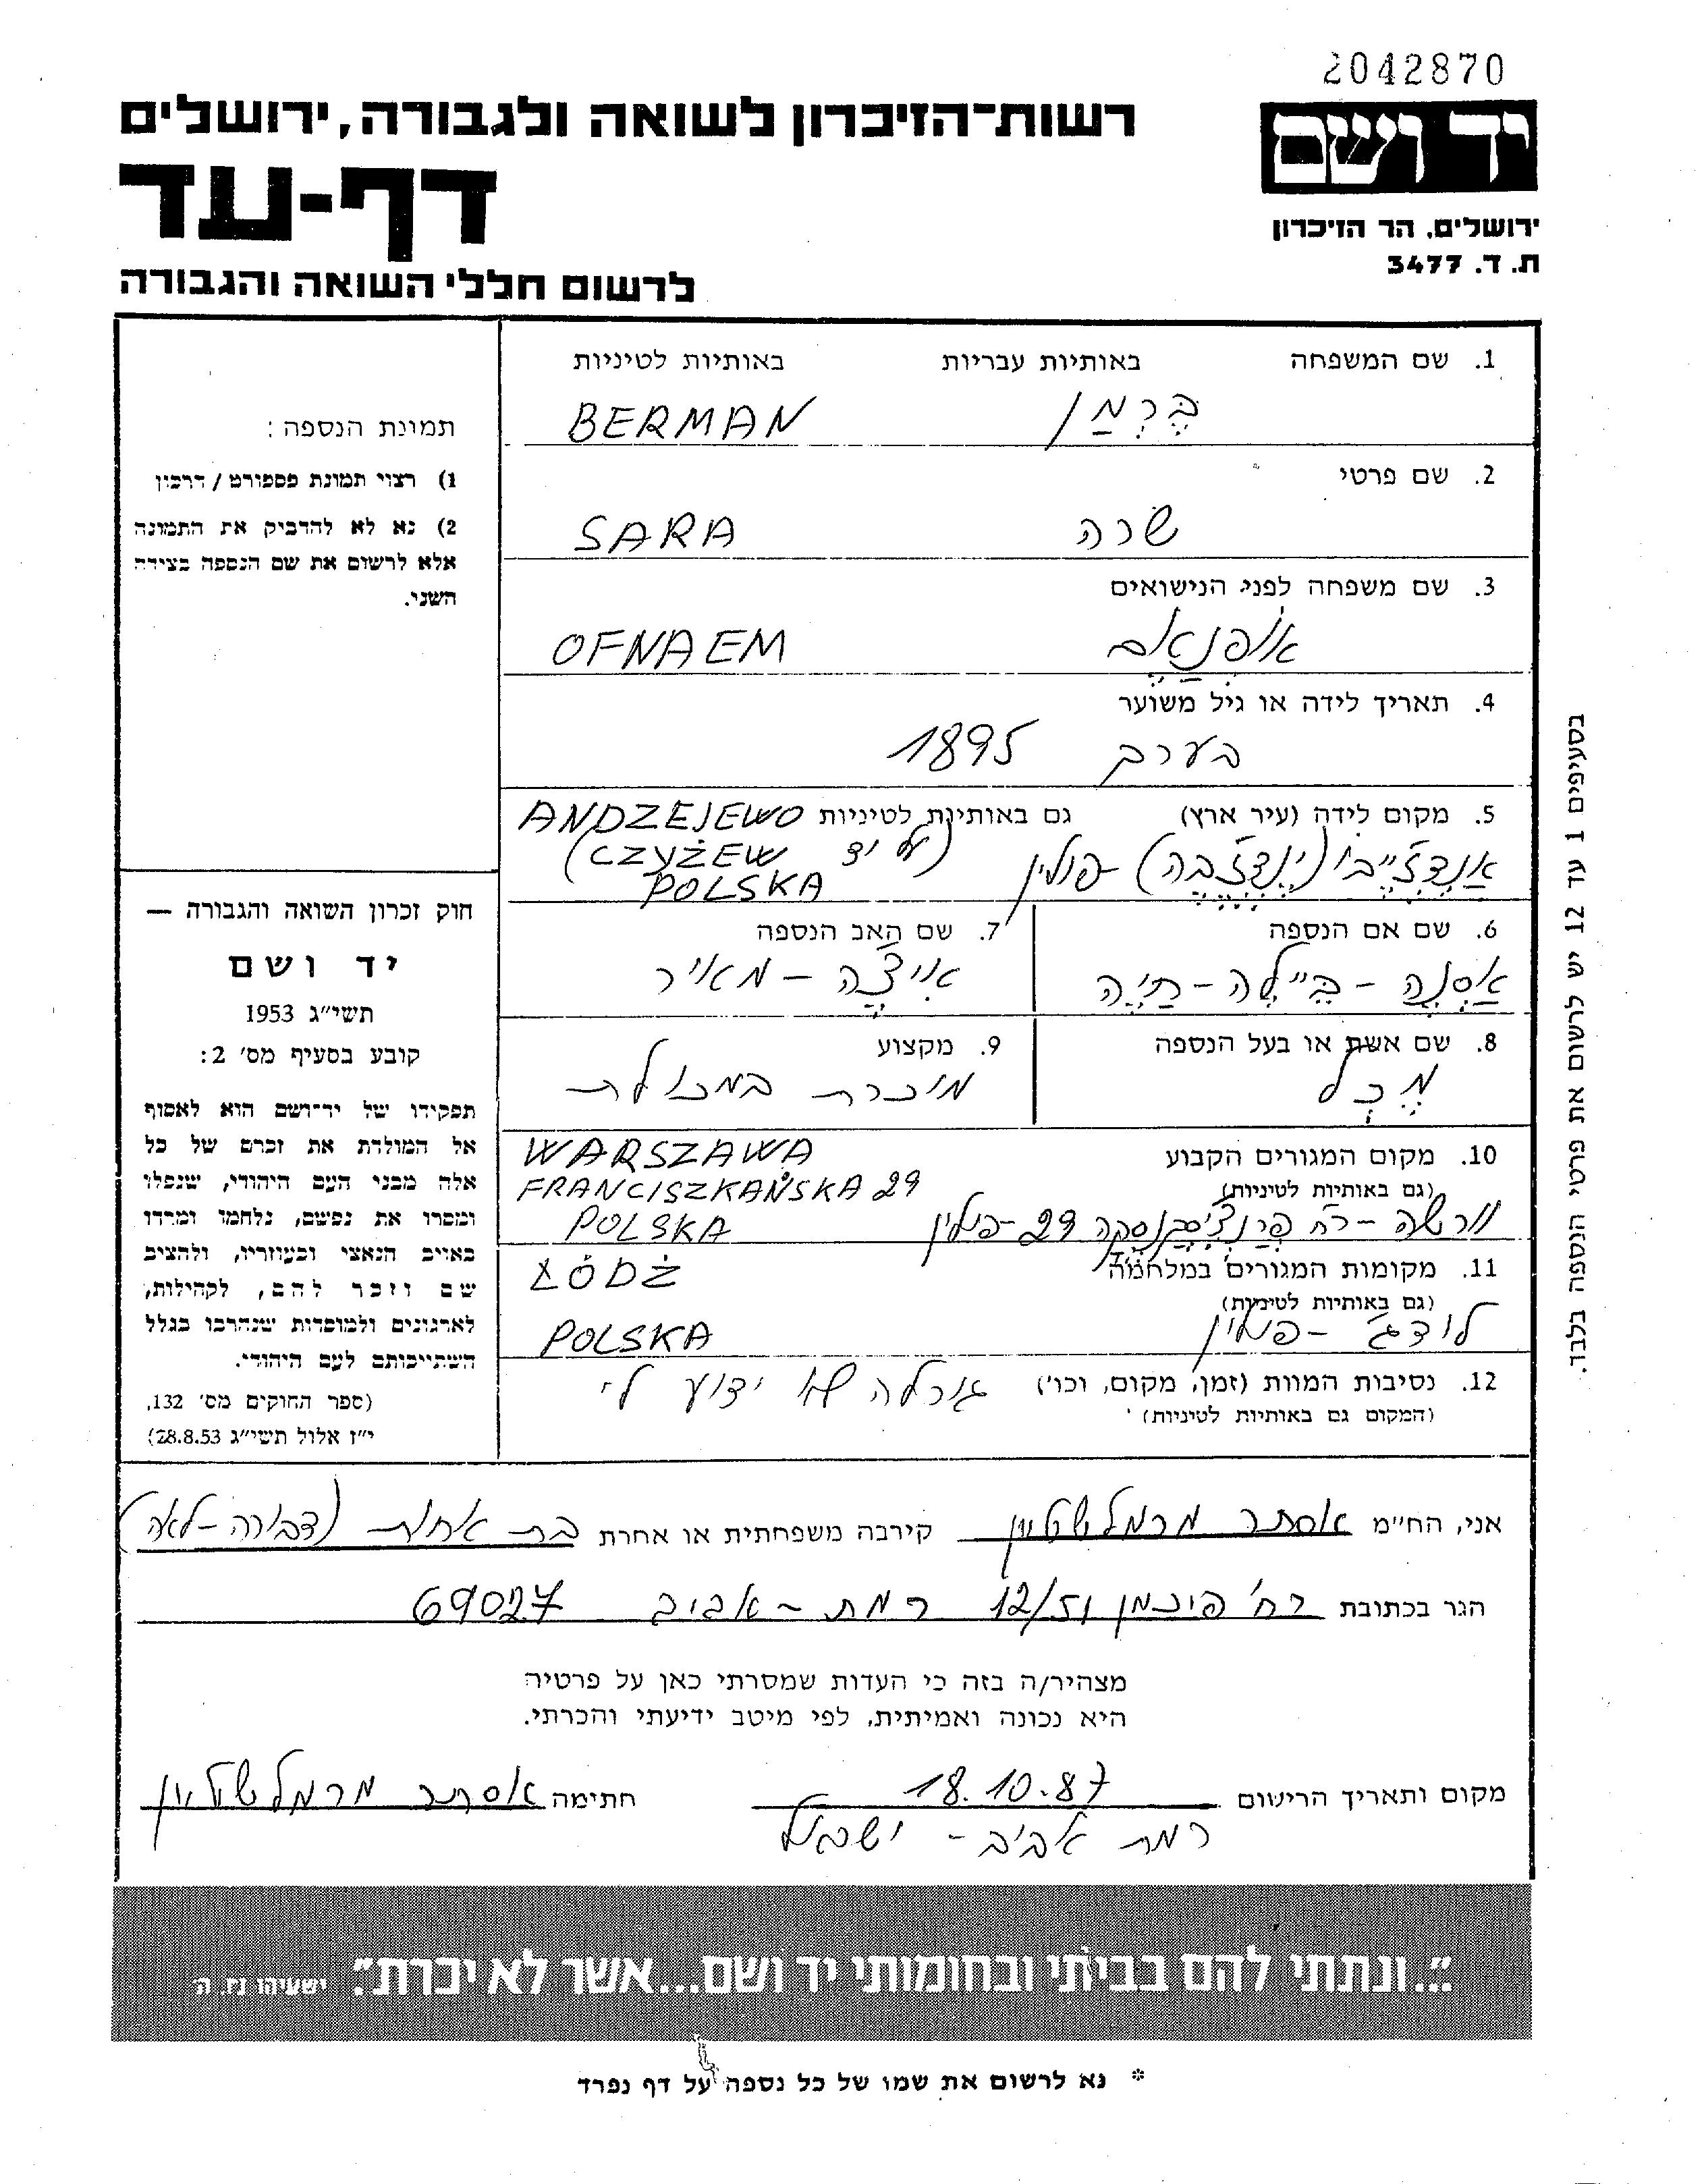 2042870
רשות־הזיכרון לשואה ולגבורה, ירושלים
יד ושם
דף-עד
ירושלים, הר הזיכרון
ת. ד. 3477
לרשום חללי השואה והגבורה
1. שם המשפחה באותיות עבריות באותיות לטיניות
בֶּרְמַן BERMAN
2. שם פרטי
שרה SARA
3. שם משפחה לפני הנישואים
אוֹפְנַאֶם OFNAEM
4. תאריך לידה או גיל משוער
בערב 1895
5. מקום לידה (עיר ארץ) גם באותיות לטיניות ANDZEJEWO
(על יד CZYŻEW)
פולין
POLSKA
6. שם אם הנספה
אַסְנָה - בֵּיילָה - חַיָה
7. שם האב הנספה
אִיצֶ'ה - מאיר
8. שם אשת או בעל הנספה
מֶכְל
9. מקצוע
מוכרת במכולת
10. מקום המגורים הקבוע
(גם באותיות לטיניות)
WARSZAWA
FRANCISZKAŃSKA 29
POLSKA
ורשה - רח' פרנצישקנסקה 29 - פולין
11. מקומות המגורים במלחמה
(גם באותיות לטיניות)
ŁÓDŹ
לודג' - פולין POLSKA
12. נסיבות המוות (זמן, מקום, וכו') גורלה לא ידוע לי
(המקום גם באותיות לטיניות)
תמונת הנספה:
1) רצוי תמונת פספורט / דרכון
2) נא לא להדביק את התמונה
אלא לרשום את שם הנספה בצידה
השני.
חוק זכרון השואה והגבורה —
יד ושם
תשי״ג 1953
קובע בסעיף מס׳ 2:
תפקידו של יד־ושם הוא לאסוף
אל המולדת את זכרם של כל
אלה מבני העם היהודי, שנפלו
ומסרו את נפשם, נלחמו ומרדו
באויב הנאצי ובעוזריו, ולהציב
שם וזכר להם, לקהילות,
לארגונים ולמוסדות שנהרבו בגלל
השתייכותם לעם היהודי.
(ספר החוקים מס׳ 132,
י״ז אלול תשי״ג 28.8.53)
בסעיפים 1 עד 12 יש לרשום את פרטי הנספה בלבד.
אני, הח״מ אסתר מרמלשטיין קירבה משפחתית או אחרת בת אחות (דבורה-לאה)
הגר בכתובת רח' פיכמן 12/51 רמת-אביב 69027
מצהיר/ה בזה כי העדות שמסרתי כאן על פרטיה
היא נכונה ואמיתית, לפי מיטב ידיעתי והכרתי.
מקום ותאריך הרישום 18.10.87 חתימה אסתר מרמלשטיין
רמת אביב - ישראל
״...ונתתי להם בביתי ובחומותי יד ושם...אשר לא יכרת״. ישעיהו נו, ה
* נא לרשום את שמו של כל נספה על דף נפרד